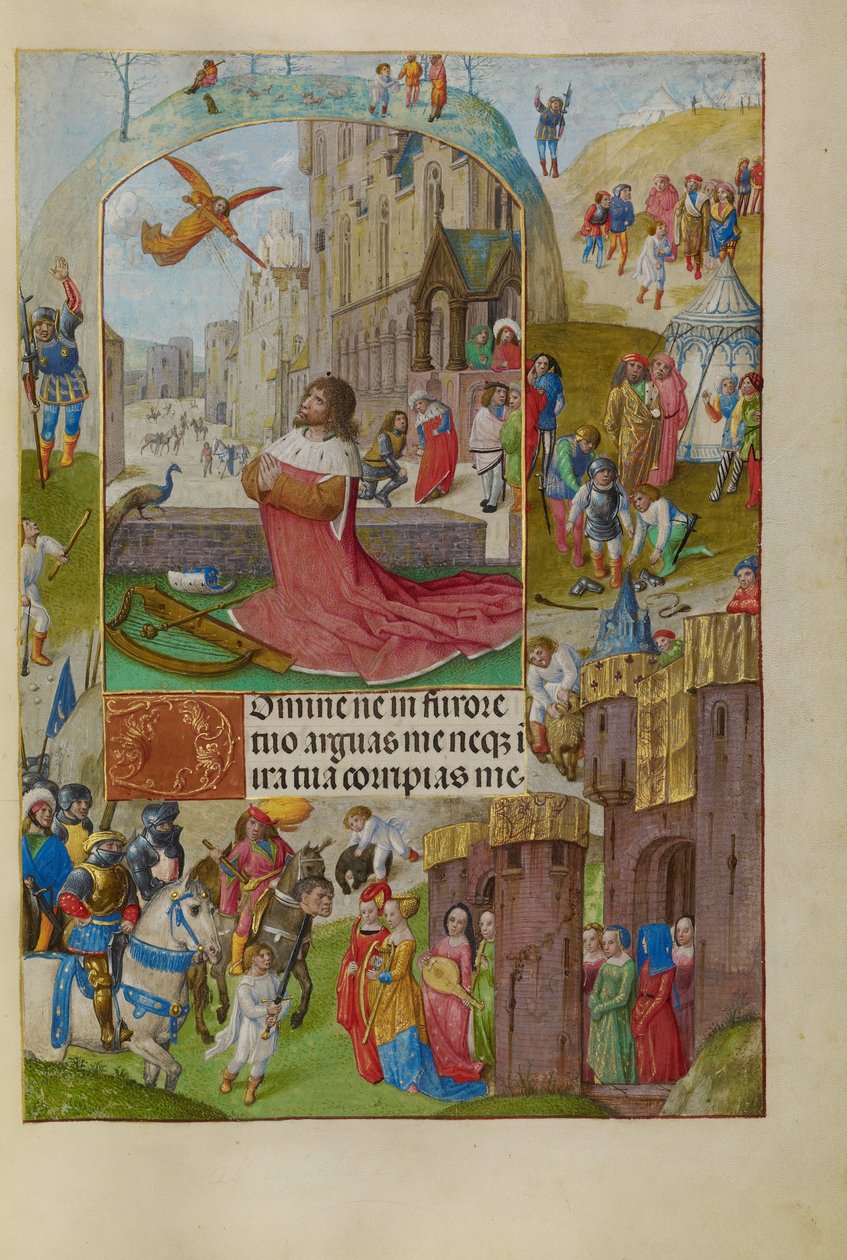 DOmine ne in furore
tuo arguas me neqꝫ i
ira tua corripias me.